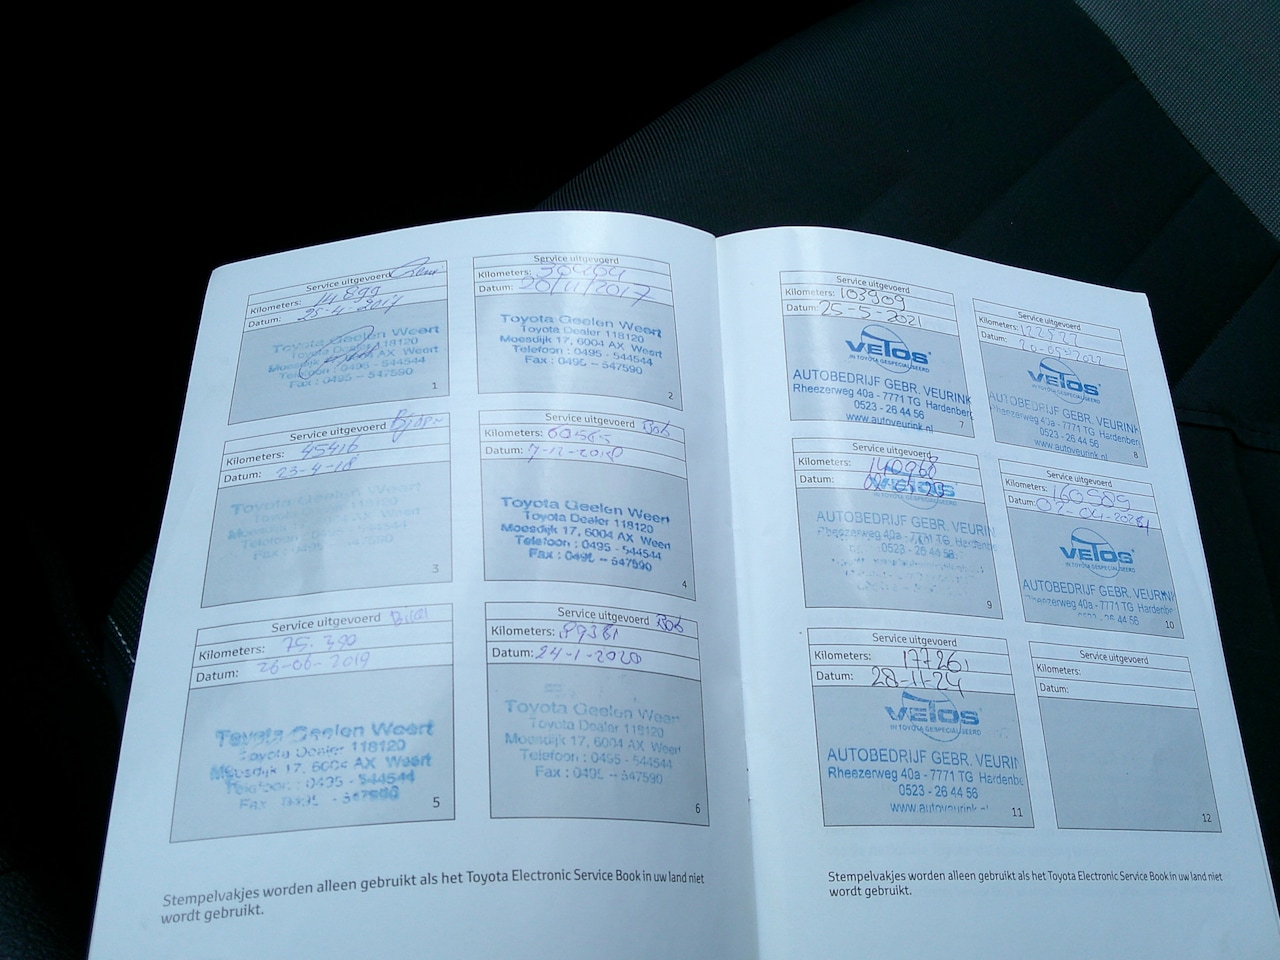 Service uitgevoerd
Kilometers: 14899
Datum: 25-4-2017
Toyota Geelen Weert
Toyota Dealer 118120
Moesdijk 17, 6004 AX Weert
Telefoon : 0495 - 544544
Fax : 0495 - 547590
1
Service uitgevoerd
Kilometers: 30464
Datum: 20/11/2017
Toyota Geelen Weert
Toyota Dealer 118120
Moesdijk 17, 6004 AX Weert
Telefoon : 0495 - 544544
Fax : 0495 - 547590
2
Service uitgevoerd Bjorn
Kilometers: 45416
Datum: 23-4-18
Toyota Geelen Weert
Toyota Dealer 118120
Moesdijk 17, 6004 AX Weert
Telefoon : 0495 - 544544
Fax : 0495 - 547590
3
Service uitgevoerd Bob
Kilometers: 60565
Datum: 7-12-2018
Toyota Geelen Weert
Toyota Dealer 118120
Moesdijk 17, 6004 AX Weert
Telefoon : 0495 - 544544
Fax : 0495 - 547590
4
Service uitgevoerd
Kilometers: 75.390
Datum: 26-06-2019
Toyota Geelen Weert
Toyota Dealer 118120
Moesdijk 17, 6004 AX Weert
Telefoon : 0495 - 544544
Fax : 0495 - 547590
5
Service uitgevoerd Bob
Kilometers: 89381
Datum: 24-1-2020
Toyota Geelen Weert
Toyota Dealer 118120
Moesdijk 17, 6004 AX Weert
Telefoon : 0495 - 544544
Fax : 0495 - 547590
6
Stempelvakjes worden alleen gebruikt als het Toyota Electronic Service Book in uw land niet
wordt gebruikt.
Service uitgevoerd
Kilometers: 103909
Datum: 25-5-2021
VETOS
IN TOYOTA GESPECIALISEERD
AUTOBEDRIJF GEBR. VEURINK
Rheezerweg 40a - 7771 TG Hardenberg
0523 - 26 44 56
www.autoveurink.nl
7
Service uitgevoerd
Kilometers:
Datum:
VETOS
IN TOYOTA GESPECIALISEERD
AUTOBEDRIJF GEBR. VEURINK
Rheezerweg 40a - 7771 TG Hardenberg
0523 - 26 44 56
www.autoveurink.nl
8
Service uitgevoerd
Kilometers: 140960
Datum:
AUTOBEDRIJF GEBR. VEURIN
Rheezerweg 40a - 7771 TG Hardenbe
0523 - 26 44 56
9
Service uitgevoerd
Kilometers: 160589
Datum:
VETOS
IN TOYOTA GESPECIALISEERD
AUTOBEDRIJF GEBR. VEURINK
Rheezerweg 40a - 7771 TG Hardenbe
0523 - 26 44 56
10
Service uitgevoerd
Kilometers: 177261
Datum: 28-11-24
VETOS
IN TOYOTA GESPECIALISEERD
AUTOBEDRIJF GEBR. VEURIN
Rheezerweg 40a - 7771 TG Hardenbe
0523 - 26 44 56
www.autoveurink.nl
11
Service uitgevoerd
Kilometers:
Datum:
12
Stempelvakjes worden alleen gebruikt als het Toyota Electronic Service Book in uw land niet
wordt gebruikt.